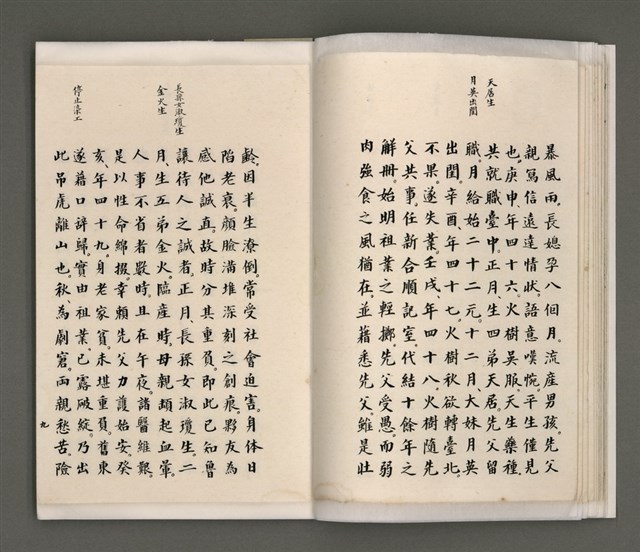 天居生
月英出閣
暴風雨。長媳孕八個月。流產男孩。先父
親篤信遠達情狀。語意嘆惋。平生僅見
也。庚申年四十六。火樹吳服、天生藥種。
共就職臺中。正月、生四弟天居。先父留
職。月給始二十二元。十二月大妹月英
出閣。辛酉、年四十七。火樹秋欲轉臺北。
不果。遂失業。壬戌、年四十八火樹隨先
父共事。任新合順記室。代結十餘年之
解冊。始明祖業之輕擲。先父受愚。而弱
肉強食之風猶在。並藉悉先父。雖是壯
長孫女淑瓊生
金火生
停止染工
齡。因半生潦倒。常受社會迫害。身体日
陷老衰。顏臉滿堆深刻之創痕。夥友為
感他誠直。故時分其重負。即此已知曾
讓待人之誠者。正月、長孫女淑瓊生。二
月、生五弟金火。臨產時母親頭起血暈。
人事不省者數時。且在午夜。諸醫維艱。
是以性命綿掇。幸賴先父力護始安。癸
亥、年四十九。身老家貧。未堪重負。舊東
遂藉口辞歸。實由祖業。已露破綻。乃出
此吊虎離山也。秋、為劇窘。両親愁苦。險
九